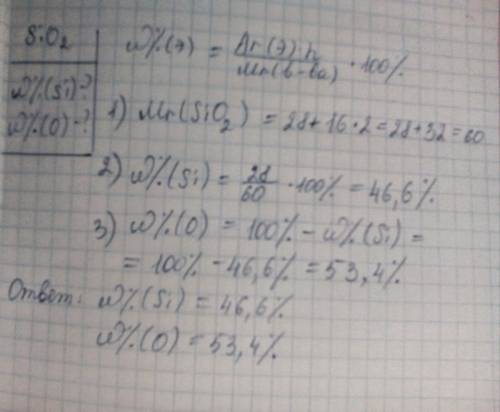 SiO₂
W%(Si)-?
W%(O)-?
W%(э) = Ar(э)·n / Mr(в-ва) · 100%
1) Mr(SiO₂) = 28+16·2=28+32=60
2) W%(Si) = 28/60 ·100% = 46,6%
3) W%(O) = 100% - W%(Si) =
= 100% - 46,6% = 53,4%
Ответ: W%(Si) = 46,6%
W%(O) = 53,4%